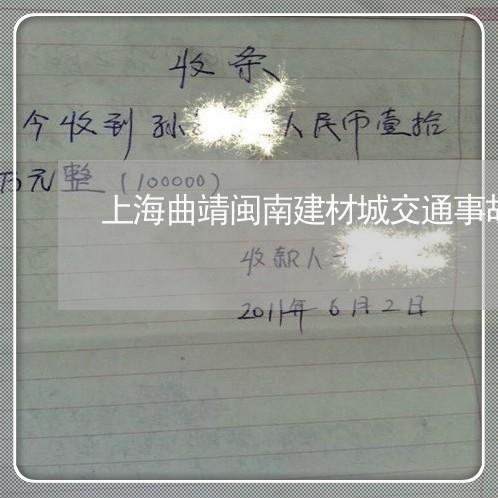 收条
今收到孙 人民币壹拾
万元整（100000）
上海曲靖闽南建材城交通事故
收款人
2011年6月2日